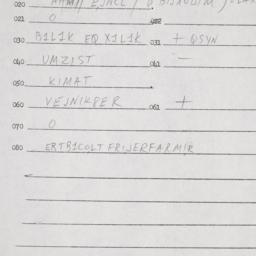 020
021 O 022
030 B1L1K EQ X1L1K 031 + QSYN
040 UMZIST 041 —
050 KIMAT
060 VEJNIKPER 061 +
070 O
080 ERTB1COLT FRIJERFARMIR